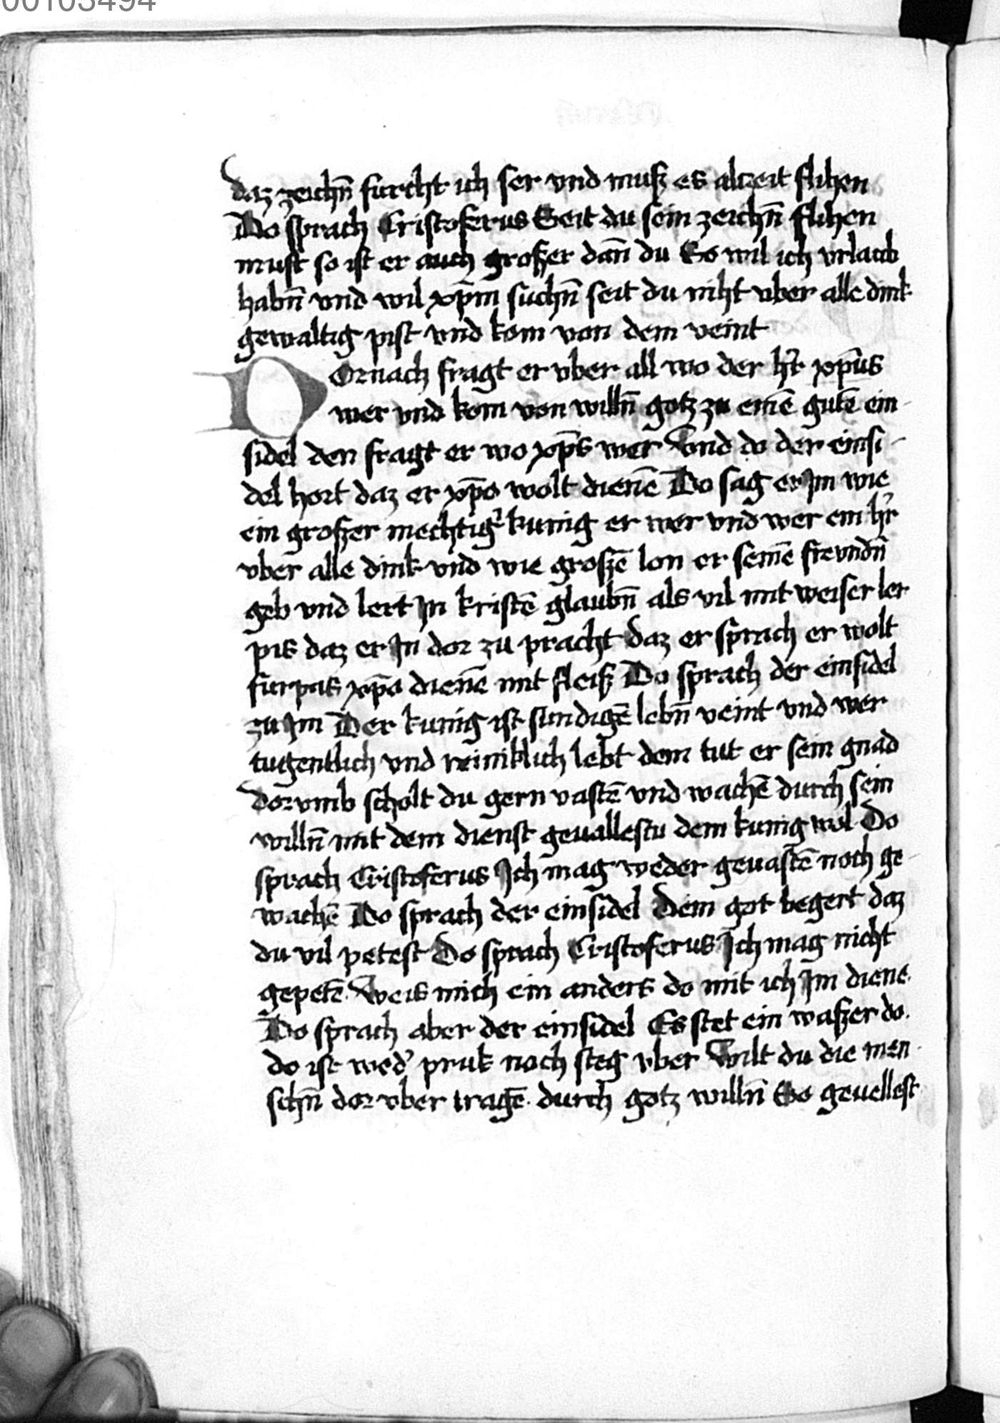 00103494
daz zeichn̄ furcht ich ser vnd muſz es alczeit flihen
Do ſprach Criſtoferus Seit du ſein zeichn̄ flihen
muſt so iſt er auch groſzer dan̄ du So wil ich vrlaub
habn̄ vnd wil xp̄m ſuchn̄ ſeit du niht vber alle dink
gewaltig piſt vnd kom von dem veint
Dornach fragt er vber all wo der hr̄ xp̄us
wer vnd kom von willn̄ gotz zu einē gutē ein
ſidel den fragt er wo xp̄s wer Vnd do der einſi-
del hort daz er xp̄o wolt dienē Do ſag er Jm wie
ein groſzer mechtig' kunig er wer vnd wer ein hr̄
vber alle dink vnd wie groſzē lon er ſeinē frevndn̄
geb vnd lert Jn kriſtē glaubn̄ als vil mit weiſer ler
pis daz er Jn dor zu pracht daz er ſprach er wolt
furpas xp̄o dienē mit fleiſz Do ſprach der einſidel
zu Jm Der kunig iſt ſundigē lebn̄ veint vnd wer
tugentlich vnd reiniklich lebt dem tut er ſein gnad
dorvmb ſcholt du gern vaſtē vnd wachē durch ſein
willn̄ mit dem dienſt geualleſtu dem kunig wol Do
ſprach Criſtoferus Jch mag weder geuaſtē noch ge-
wachē Do ſprach der einſidel Dem got begert daz
du vil peteſt Do ſprach Criſtoferus Jch mag nicht
gepetē. Weis mich ein anders do mit ich Jm diene.
Do ſprach aber der einſidel Es ſtet ein waſzer do.
do iſt wed' pruk noch ſteg vber Wilt du die men-
ſchn̄ dor vber tragē durch gotz willn̄ So geuelleſt